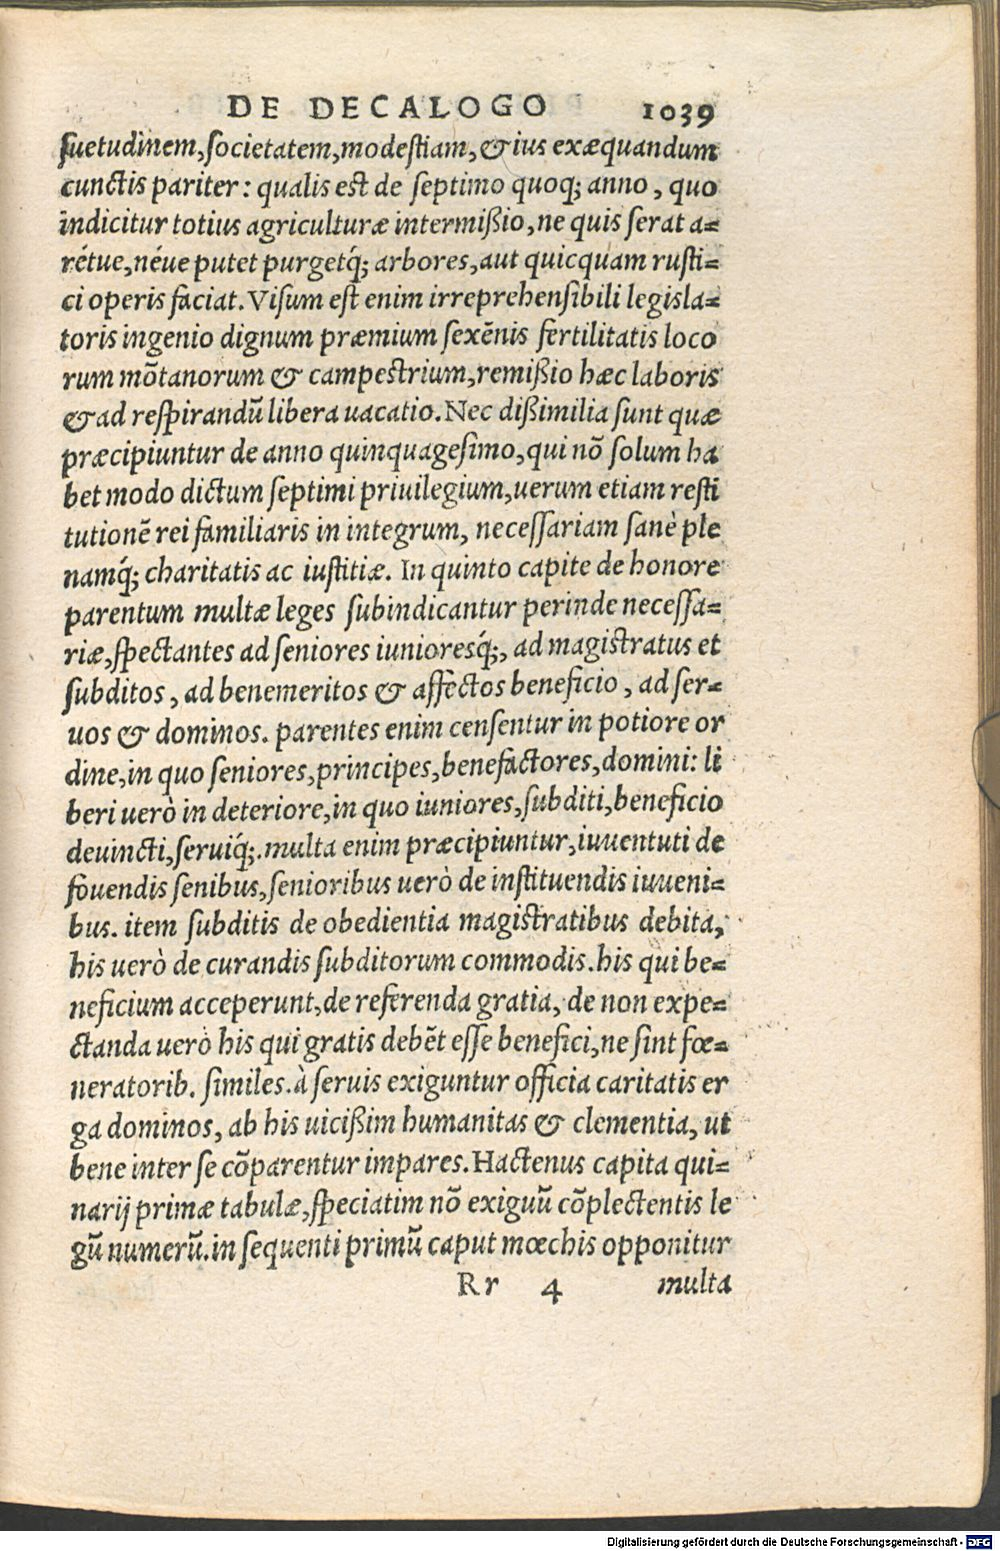 DE DECALOGO 1039
ſuetudinem,ſocietatem,modeſtiam,& ius exæquandum
cunctis pariter: qualis est de ſeptimo quoq; anno, quo
indicitur totius agriculturæ intermißio,ne quis ſerat a=
rétue,néue putet purgetq́; arbores,aut quicquam ruſti=
ci operis faciat. Viſum est enim irreprehenſibili legisla=
toris ingenio dignum præmium ſexēnis fertilitatis loco
rum mōtanorum & campeſtrium,remißio hæc laboris
& ad reſpirandū libera uacatio. Nec dißimilia ſunt quæ
præcipiuntur de anno quinquageſimo,qui nō ſolum ha
bet modo dictum ſeptimi priuilegium,uerum etiam reſti
tutionē rei familiaris in integrum, neceſſariam ſanè ple
namq́; charitatis ac iuſtitiæ. In quinto capite de honore
parentum multæ leges ſubindicantur perinde neceſſa=
riæ,ſpectantes ad ſeniores iunioresq́;, ad magiſtratus et
ſubditos, ad benemeritos & affectos beneficio, ad ſer=
uos & dominos. parentes enim cenſentur in potiore or
dine,in quo ſeniores,principes,benefactores,domini: li
beri uerò in deteriore,in quo iuniores,ſubditi,beneficio
deuincti,ſeruiq́;. multa enim præcipiuntur,iuuentuti de
fouendis ſenibus,ſenioribus uerò de inſtituendis iuueni=
bus. item ſubditis de obedientia magiſtratibus debita,
his uerò de curandis ſubditorum commodis. his qui be=
neficium acceperunt,de referenda gratia, de non expe=
ctanda uerò his qui gratis debēt eſſe benefici,ne ſint fœ=
neratorib. ſimiles. à ſeruis exiguntur officia caritatis er
ga dominos, ab his uicißim humanitas & clementia, ut
bene inter ſe cōparentur impares. Hactenus capita qui=
narij primæ tabulæ,ſpeciatim nō exiguū cōplectentis le
gū numerū. in ſequenti primū caput mœchis opponitur
Rr 4 multa
Digitalisierung gefördert durch die Deutsche Forschungsgemeinschaft - DFG